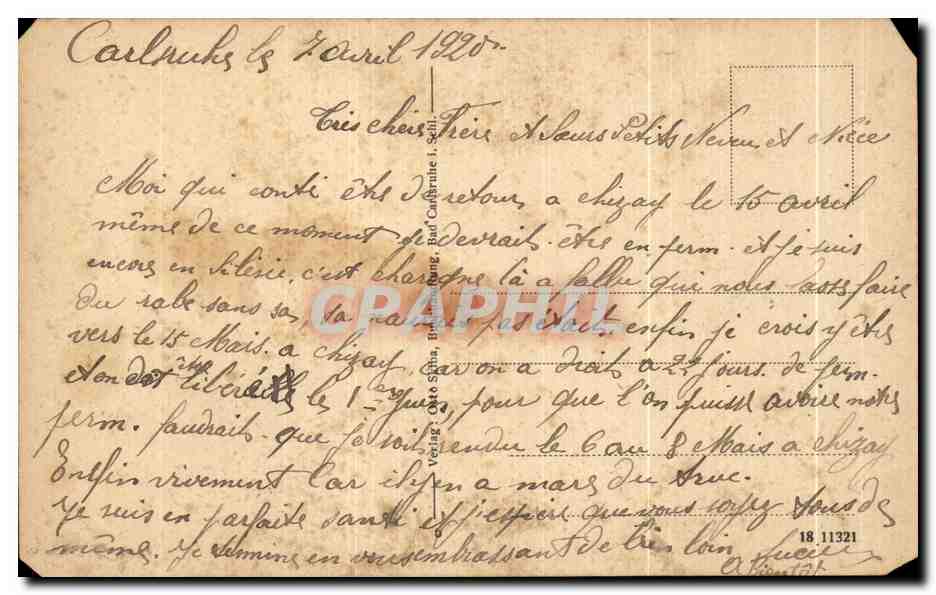 Carlsruhe le 7 avril 1920
Très chers Frère et Sœurs Petits Neveu et Nièce
Moi qui être de retour a chizay le 15 avril
même de ce moment je devrait être en perm. et je suis
encore en Silésie, c'est charogne là a fallu qui nous faire
du rabe sans pas était, enfin je crois y être
vers le 15 Mais. a chizay, car on a droit a jours de perm.
et on doit être libéré le 1er juin, pour que l'on puisse avoire notre
perm. faudrait que je soit rendu le 6 au 8 Mais a chizay
Enfin vivement car il y en a mare du truc.
Je suis en parfaite santé et j'espère que vous soyez tous de
même. Je termine en vous embrassant de très loin Lucien
A Bientôt
Verlag: Otto Skiba, Buchhandlung, Bad Carlsruhe i. Schl.
18 11321
CPAPHIL